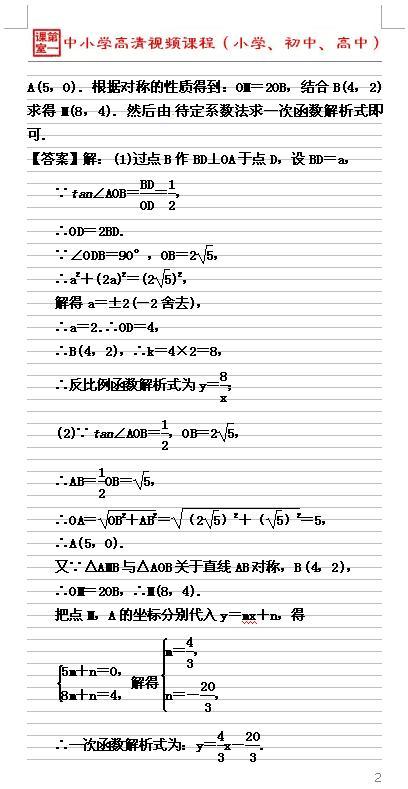 第一课室 中小学高清视频课程（小学、初中、高中）
A(5，0)．根据对称的性质得到：OM＝2OB，结合B(4，2)
求得M(8，4)．然后由 待定系数法求一次函数解析式即
可．
【答案】解：(1)过点B作BD⊥OA于点D，设BD＝a，
∵tan∠AOB＝BD/OD＝1/2，
∴OD＝2BD．
∵∠ODB＝90°，OB＝2√5，
∴a²＋(2a)²＝(2√5)²，
解得a＝±2(－2舍去)，
∴a＝2．∴OD＝4，
∴B(4，2)，∴k＝4×2＝8，
∴反比例函数解析式为y＝8/x；
(2)∵tan∠AOB＝1/2，OB＝2√5，
∴AB＝1/2OB＝√5，
∴OA＝√OB²＋AB²＝√（2√5）²＋（√5）²＝5，
∴A(5，0)．
又∵△AMB与△AOB关于直线AB对称，B(4，2)，
∴OM＝2OB，∴M(8，4)．
把点M，A的坐标分别代入y＝mx＋n，得
{5m＋n＝0，8m＋n＝4，解得{m＝4/3，n＝－20/3，
∴一次函数解析式为：y＝4/3x－20/3．
2